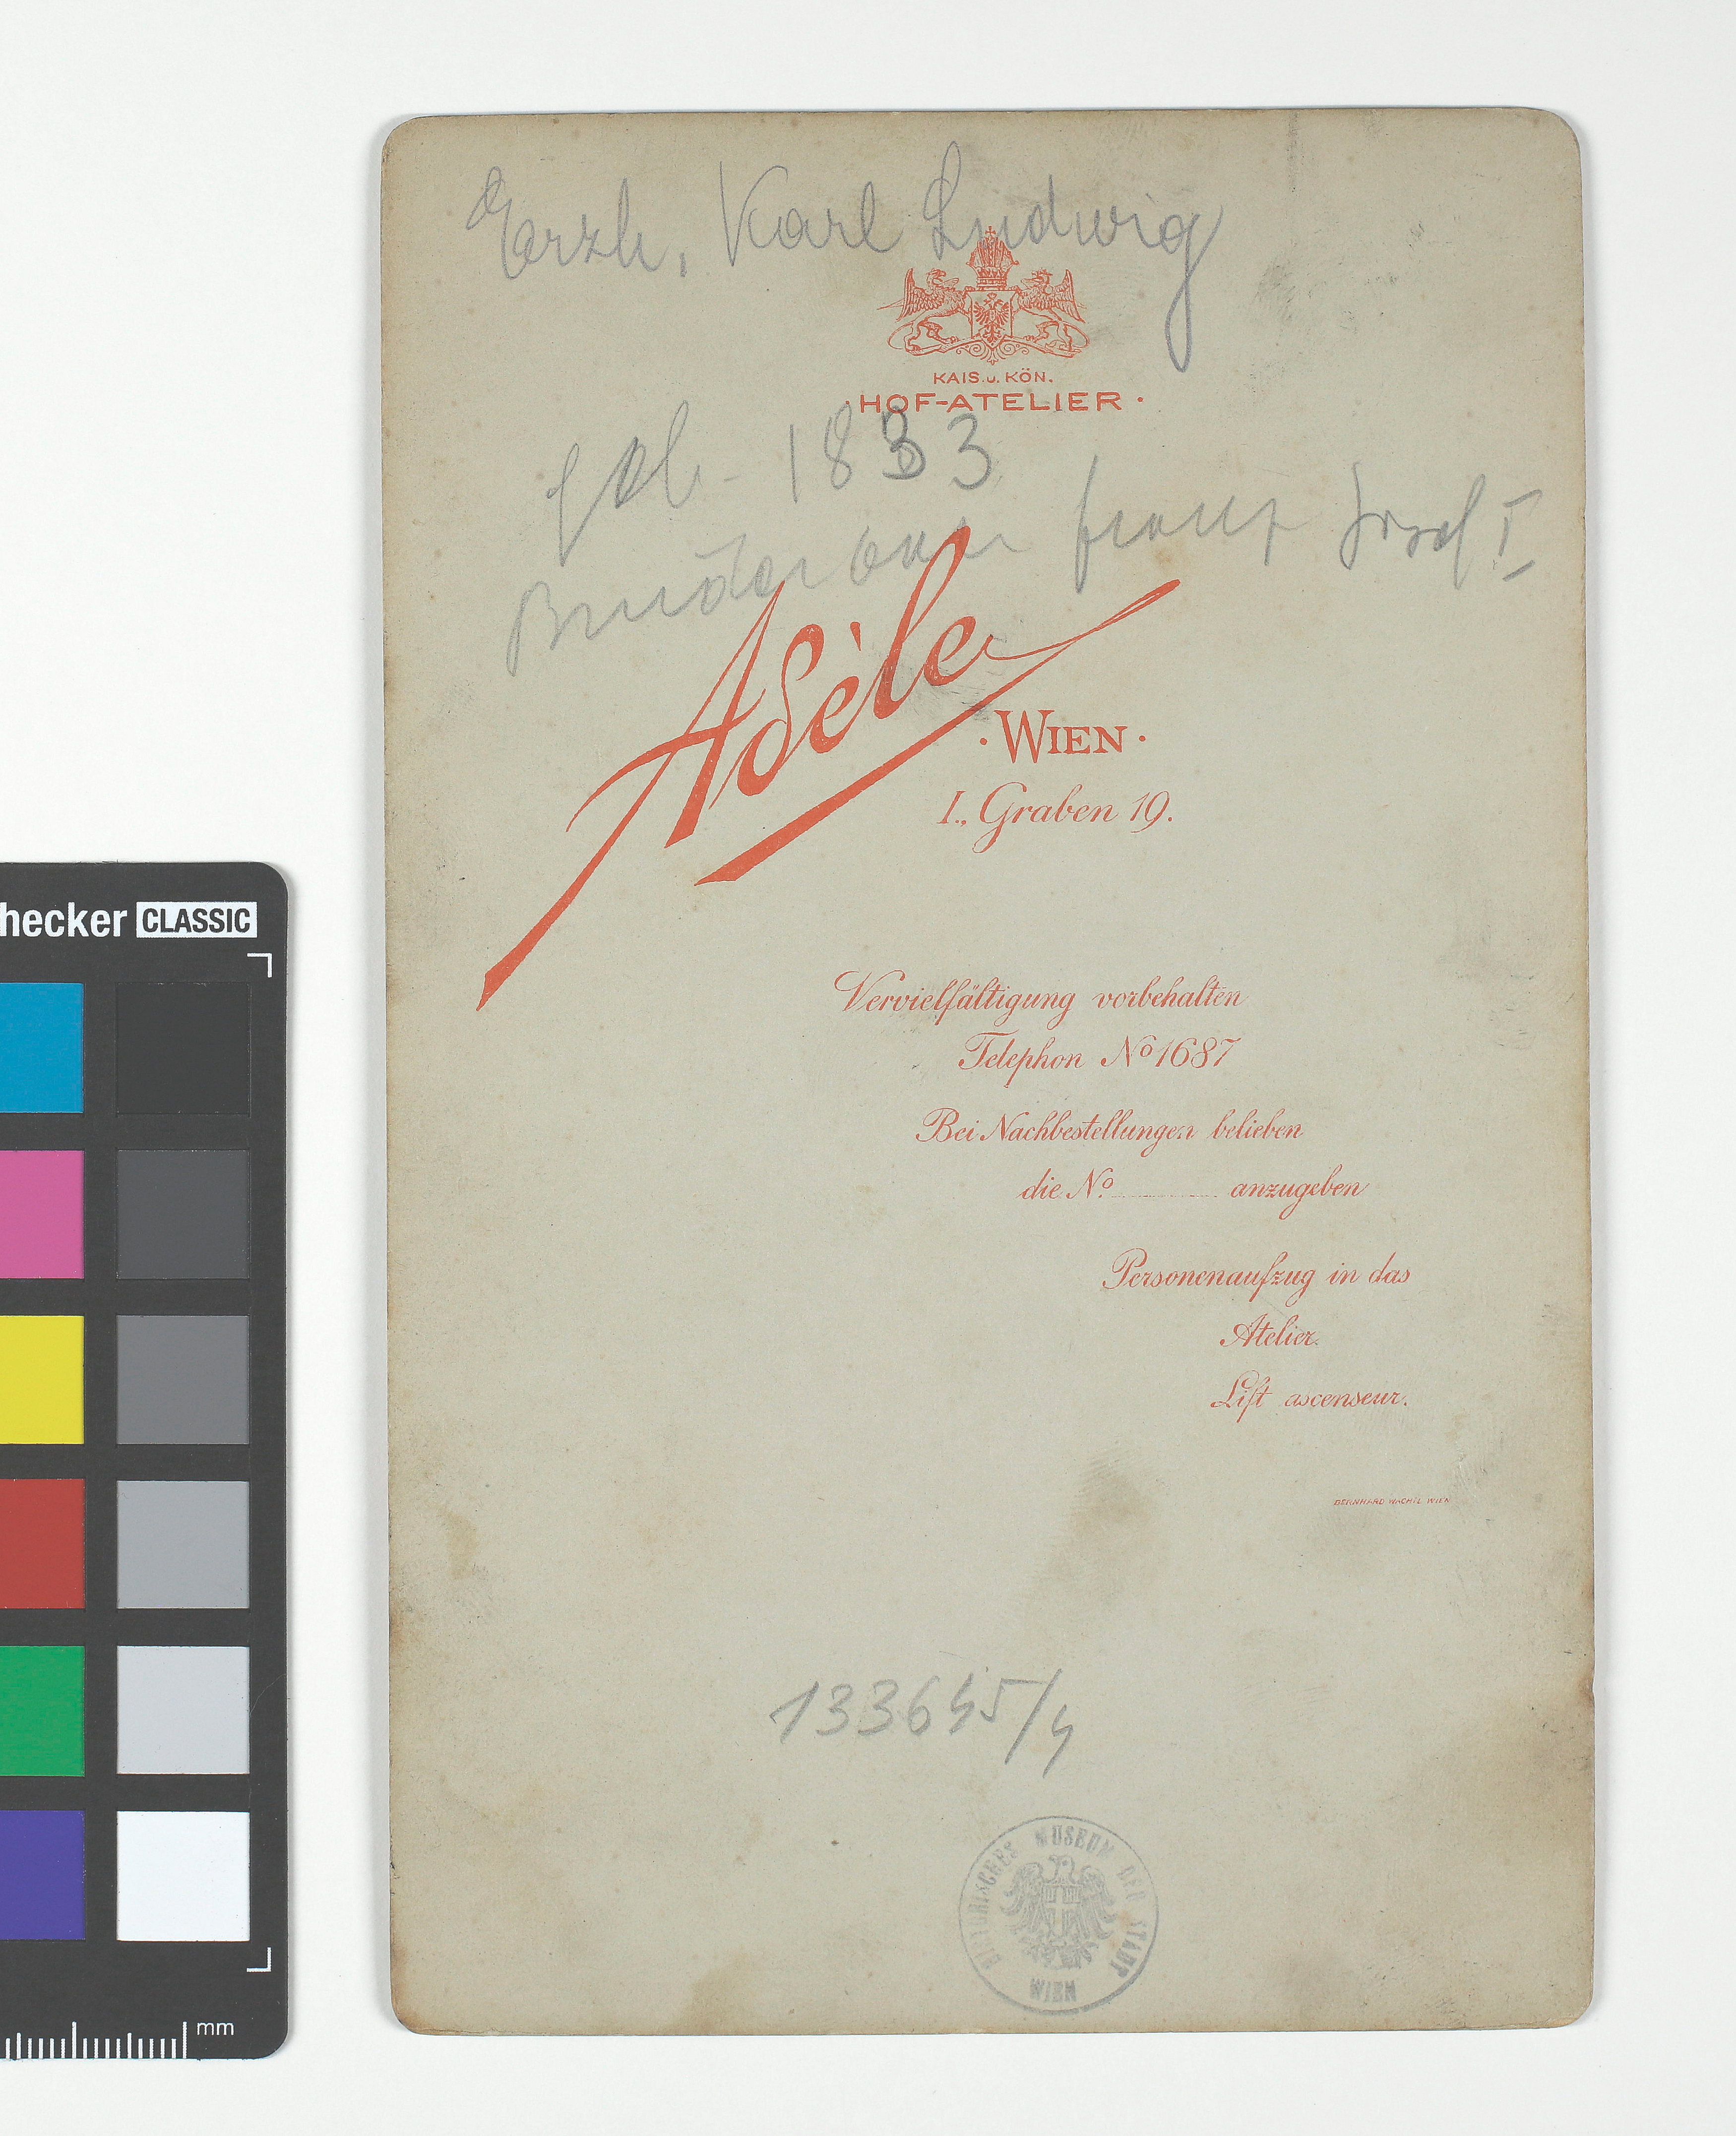 Erzh. Karl Ludwig
KAIS. u. KÖN.
· HOF-ATELIER ·
geb. 1833
Bruder von Franz Josef I
Adèle
· WIEN ·
I., Graben 19.
Vervielfältigung vorbehalten
Telephon No 1687
Bei Nachbestellungen belieben
die No. anzugeben
Personenaufzug in das
Atelier.
Lift ascenseur.
BERNHARD WACHTL WIEN
133645/4
HISTORISCHES MUSEUM DER STADT WIEN
hecker CLASSIC
mm